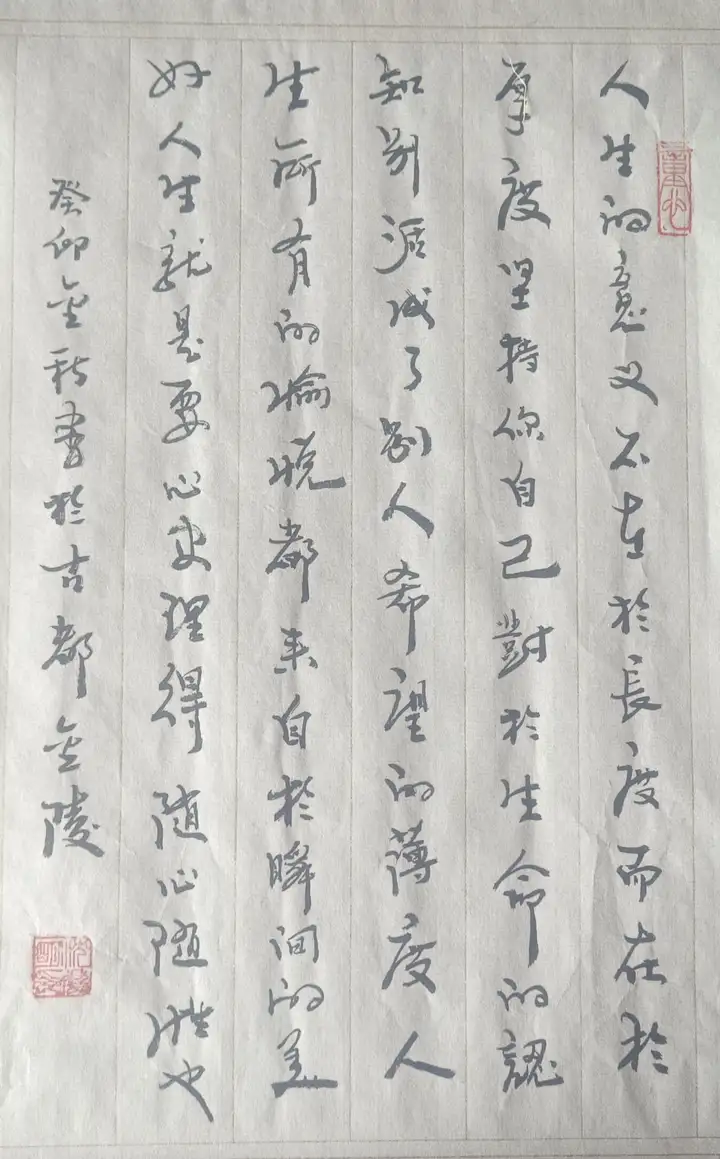 人生的意义不在於長度而在於
厚度坚持你自己對於生命的認
知别活成了别人希望的薄度人
生所有的愉晚都来自於瞬间的美
好人生就是要心安理得随心随性也
癸卯金秋書於古都金陵